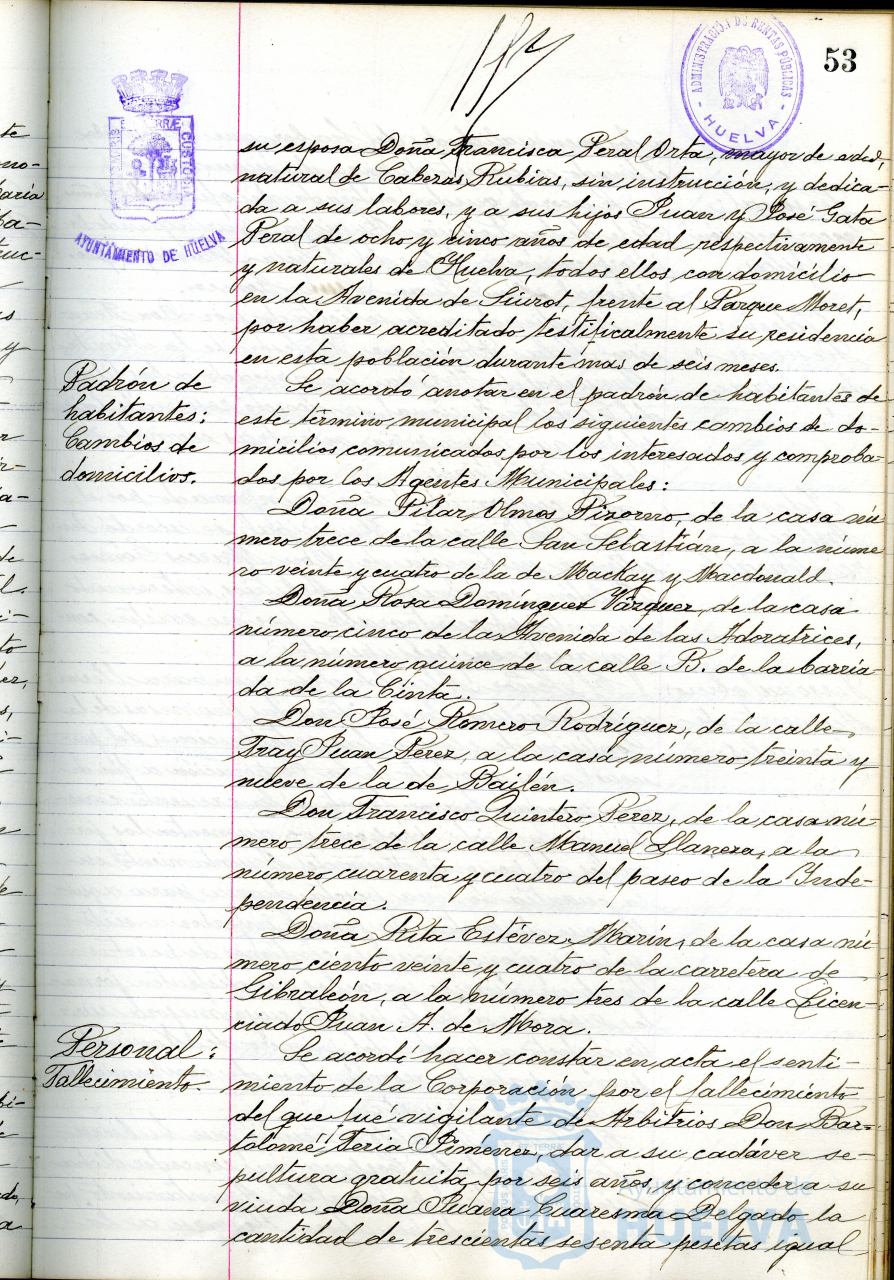 53
ADMINISTRACIÓN DE RENTAS PÚBLICAS
- HUELVA -
AYUNTAMIENTO DE HUELVA
su esposa Doña Francisca Peral Orta, mayor de edad,
natural de Cabezas Rubias, sin instrucción, y dedica-
da a sus labores, y a sus hijos Juan y José Gata
Peral de ocho y cinco años de edad respectivamente
y naturales de Huelva, todos ellos con domicilio
en la Avenida de Siurot, frente al Parque Moret,
por haber acreditado testificalmente su residencia
en esta población durante mas de seis meses.
Padrón de
habitantes:
Cambios de
domicilios.
Se acordó anotar en el padrón de habitantes de
este término municipal los siguientes cambios de do-
micilios comunicados por los interesados y comproba-
dos por los Agentes Municipales:
Doña Pilar Olmos Pizorno, de la casa nú-
mero trece de la calle San Sebastián, a la núme
ro veinte y cuatro de la de Mackay y Macdonald.
Doña Rosa Domínguez Vázquez, de la casa
número cinco de la Avenida de las Adoratrices,
a la número quince de la calle B. de la barria-
da de la Cinta.
Don José Romero Rodríguez, de la calle
Fray Juan Pérez, a la casa número treinta y
nueve de la de Bailén.
Don Francisco Quintero Pérez, de la casa nú-
mero trece de la calle Manuel Llanera, a la
número cuarenta y cuatro del paseo de la Inde-
pendencia.
Doña Rita Estévez Marín, de la casa nú-
mero ciento veinte y cuatro de la carretera de
Gibraleón, a la número tres de la calle Licen-
ciado Juan A. de Mora.
Personal:
Fallecimiento.
Se acordó hacer constar en acta el senti-
miento de la Corporación por el fallecimiento
del que fué vigilante de Arbitrios Don Bar-
tolomé Feria Jiménez, dar a su cadáver se-
pultura gratuita por seis años, y conceder a su
viuda Doña Juana Cuaresma Delgado la
cantidad de trescientas sesenta pesetas igual
Ayuntamiento de
HUELVA